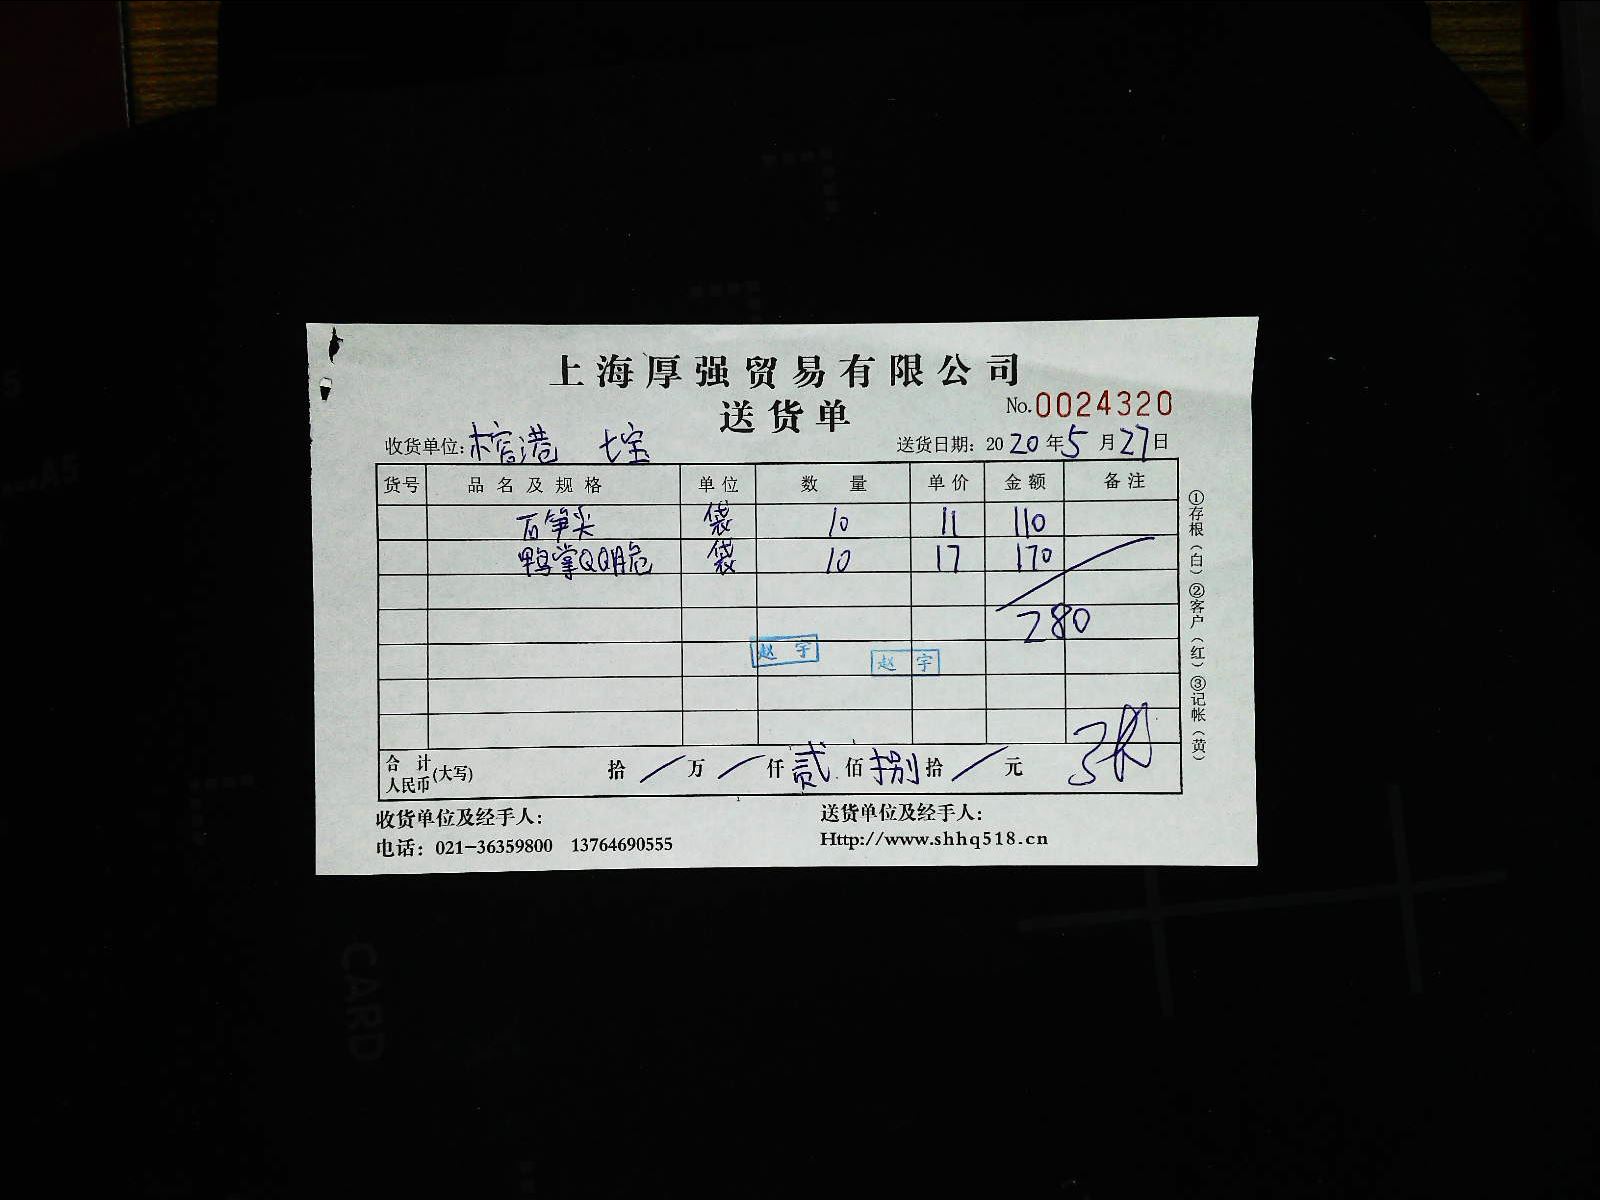 上海厚强贸易有限公司
送货单
No.0024320
收货单位:榕港 七宝
送货日期: 2020年5月27日
货号 品名及规格 单位 数量 单价 金额 备注
石笋尖 袋 10 11 110
鸭掌QQ脆 袋 10 17 170
280
赵宇
赵宇
合计人民币(大写) 拾/万/仟贰佰捌拾/元
收货单位及经手人:
送货单位及经手人:
电话: 021-36359800 13764690555
Http://www.shhq518.cn
①存根(白)②客户(红)③记帐(黄)
CARD